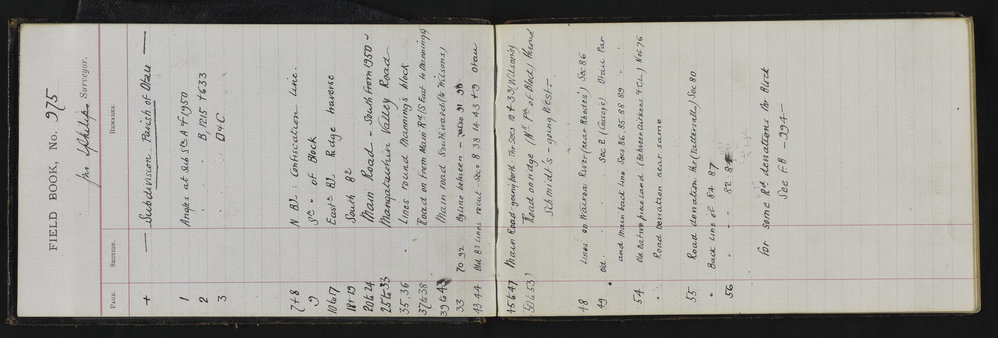 FIELD BOOK, No. 975
Jno Phillips Surveyor.
PAGE. SECTION. REMARKS.
+ — Subdivision Parish of Otau —
1 Angles at Sub Stn A of 1950
2 " " B, 1215 + 633
3 " " D + C
7+8 N Bl : Confiscation Line.
9 Sth " of Block
10 to 17 East Bl Ridge traverse
18+19 South Bl
20 to 24 Main Road – South from 1950 –
25 to 33 Mangatawhiri Valley Road
35, 36 Lines round Manning's block
37 to 38 Road on from Main Rd (S East to Manning)
39 to 43 Main road Southward (to Wilsons)
33 70 92 Bgline between – 90 91 90
43 44 Old Bl lines recut – Secs 8 38 14 43 + 9 Otau
45 to 47 Main Road going north thr Secs 10 + 33 (Wilson's)
(50 to 53) Road on ridge (Nth Pt of Block) thrnd
Schmidt's – going West –
48 Lines on Wairoa River (near Rhodes) Sec 86
49 Old. Sec R (Casey's) Otau Par
and main back line Secs 86. 85. 88 89
54 Old native pine land (between Aitkens + CL.) Nos. 76
" Road Deviation near same
55 Road deviation thr (Tattersall) Sec 80
" Back Line of 84 87
56 " " 82 84
for some Rd deviations thr Block
See FB – 994 –